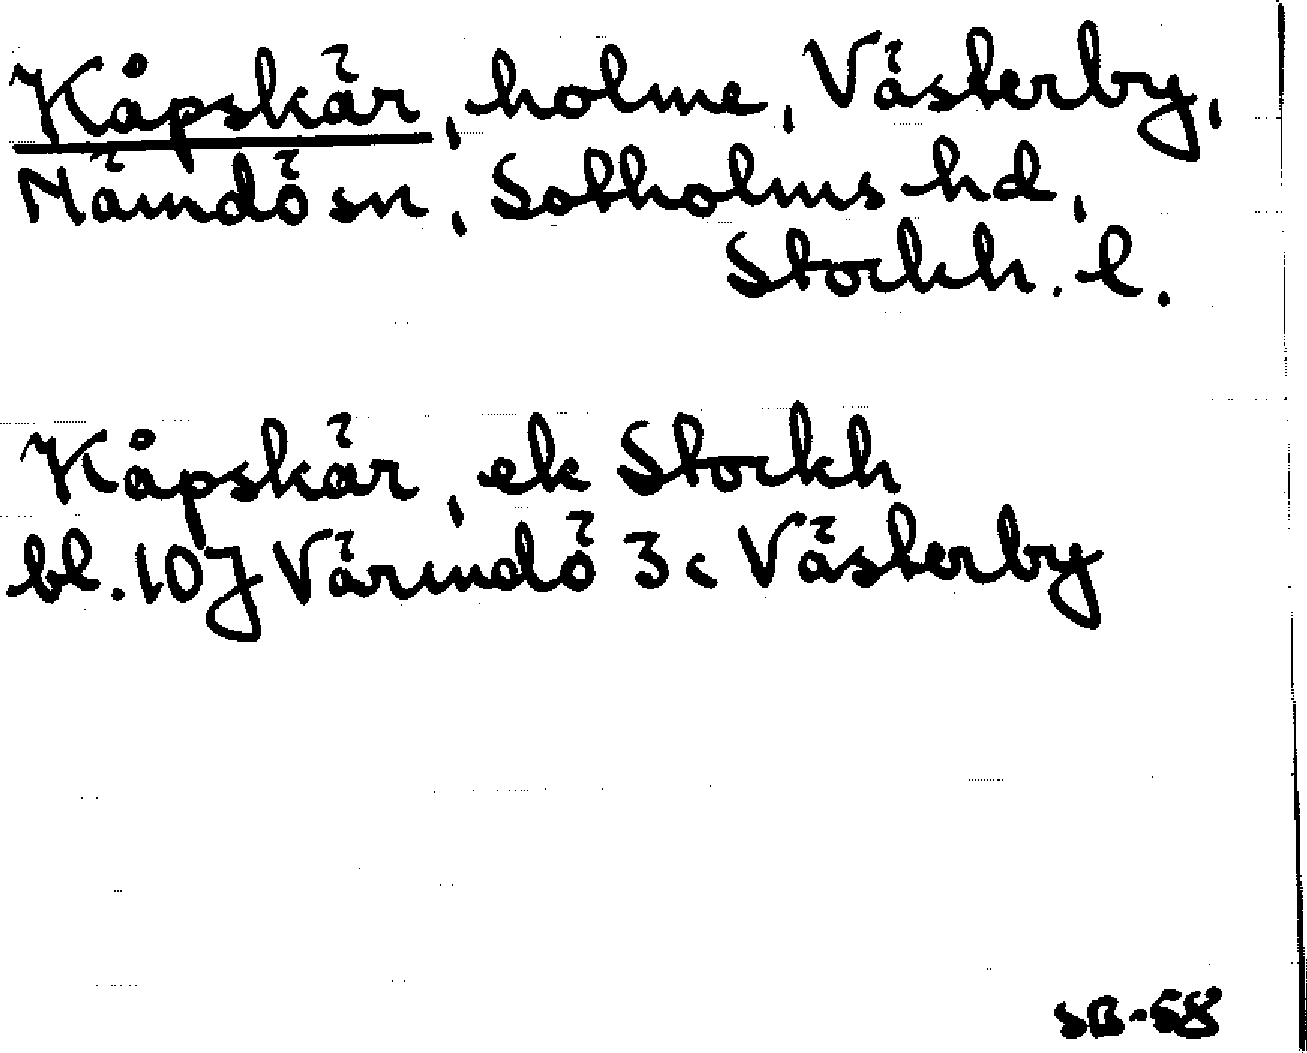 Kåpskär, holme, Västerby,
Nämdö sn, Sotholms hd,
Stockh. l.
Kåpskär, ek Stockh
bl. 10J Värmdö 3c Västerby
SB-58